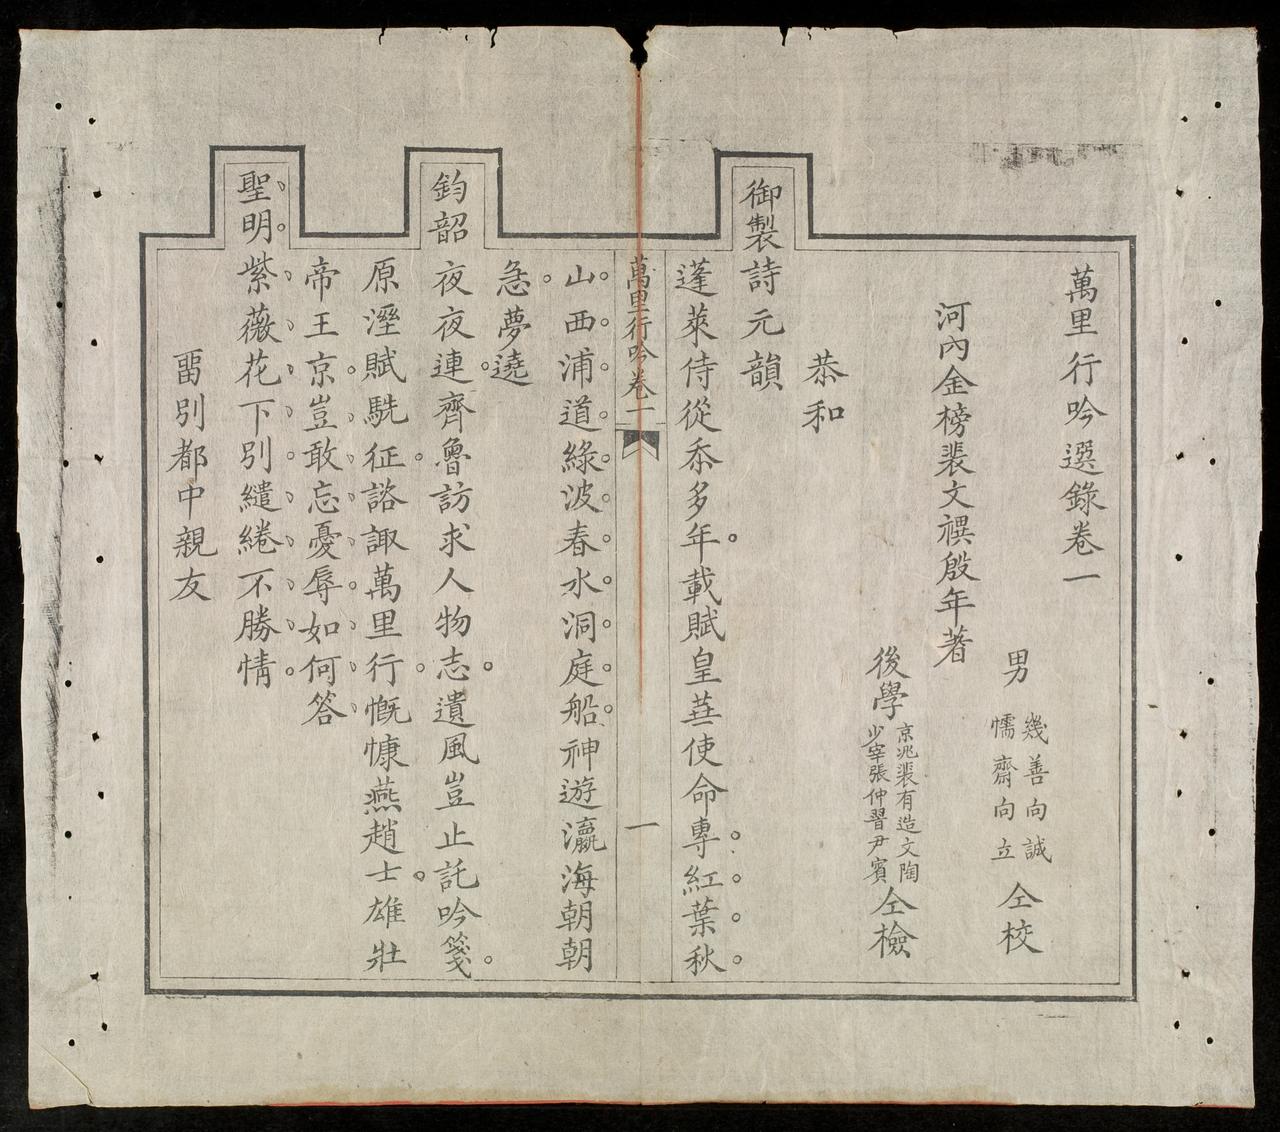 萬里行吟選錄卷一
男
幾善向誠
懦齋向立
仝校
河內金榜裴文禩殷年著
後學
京兆裴有造文陶
少宰張仲習尹賓
仝檢
恭和
御製詩元韻
蓬萊侍從忝多年載賦皇華使命專紅葉秋
萬里行吟卷一
一
山西浦道綠波春水洞庭船神遊瀛海朝朝
急夢遶
鈞韶夜夜連齊魯訪求人物志遺風豈止託吟箋
原溼賦駪征諮諏萬里行慨慷燕趙士雄壯
帝王京豈敢忘憂辱如何答
聖明紫薇花下別繾綣不勝情
畱別都中親友